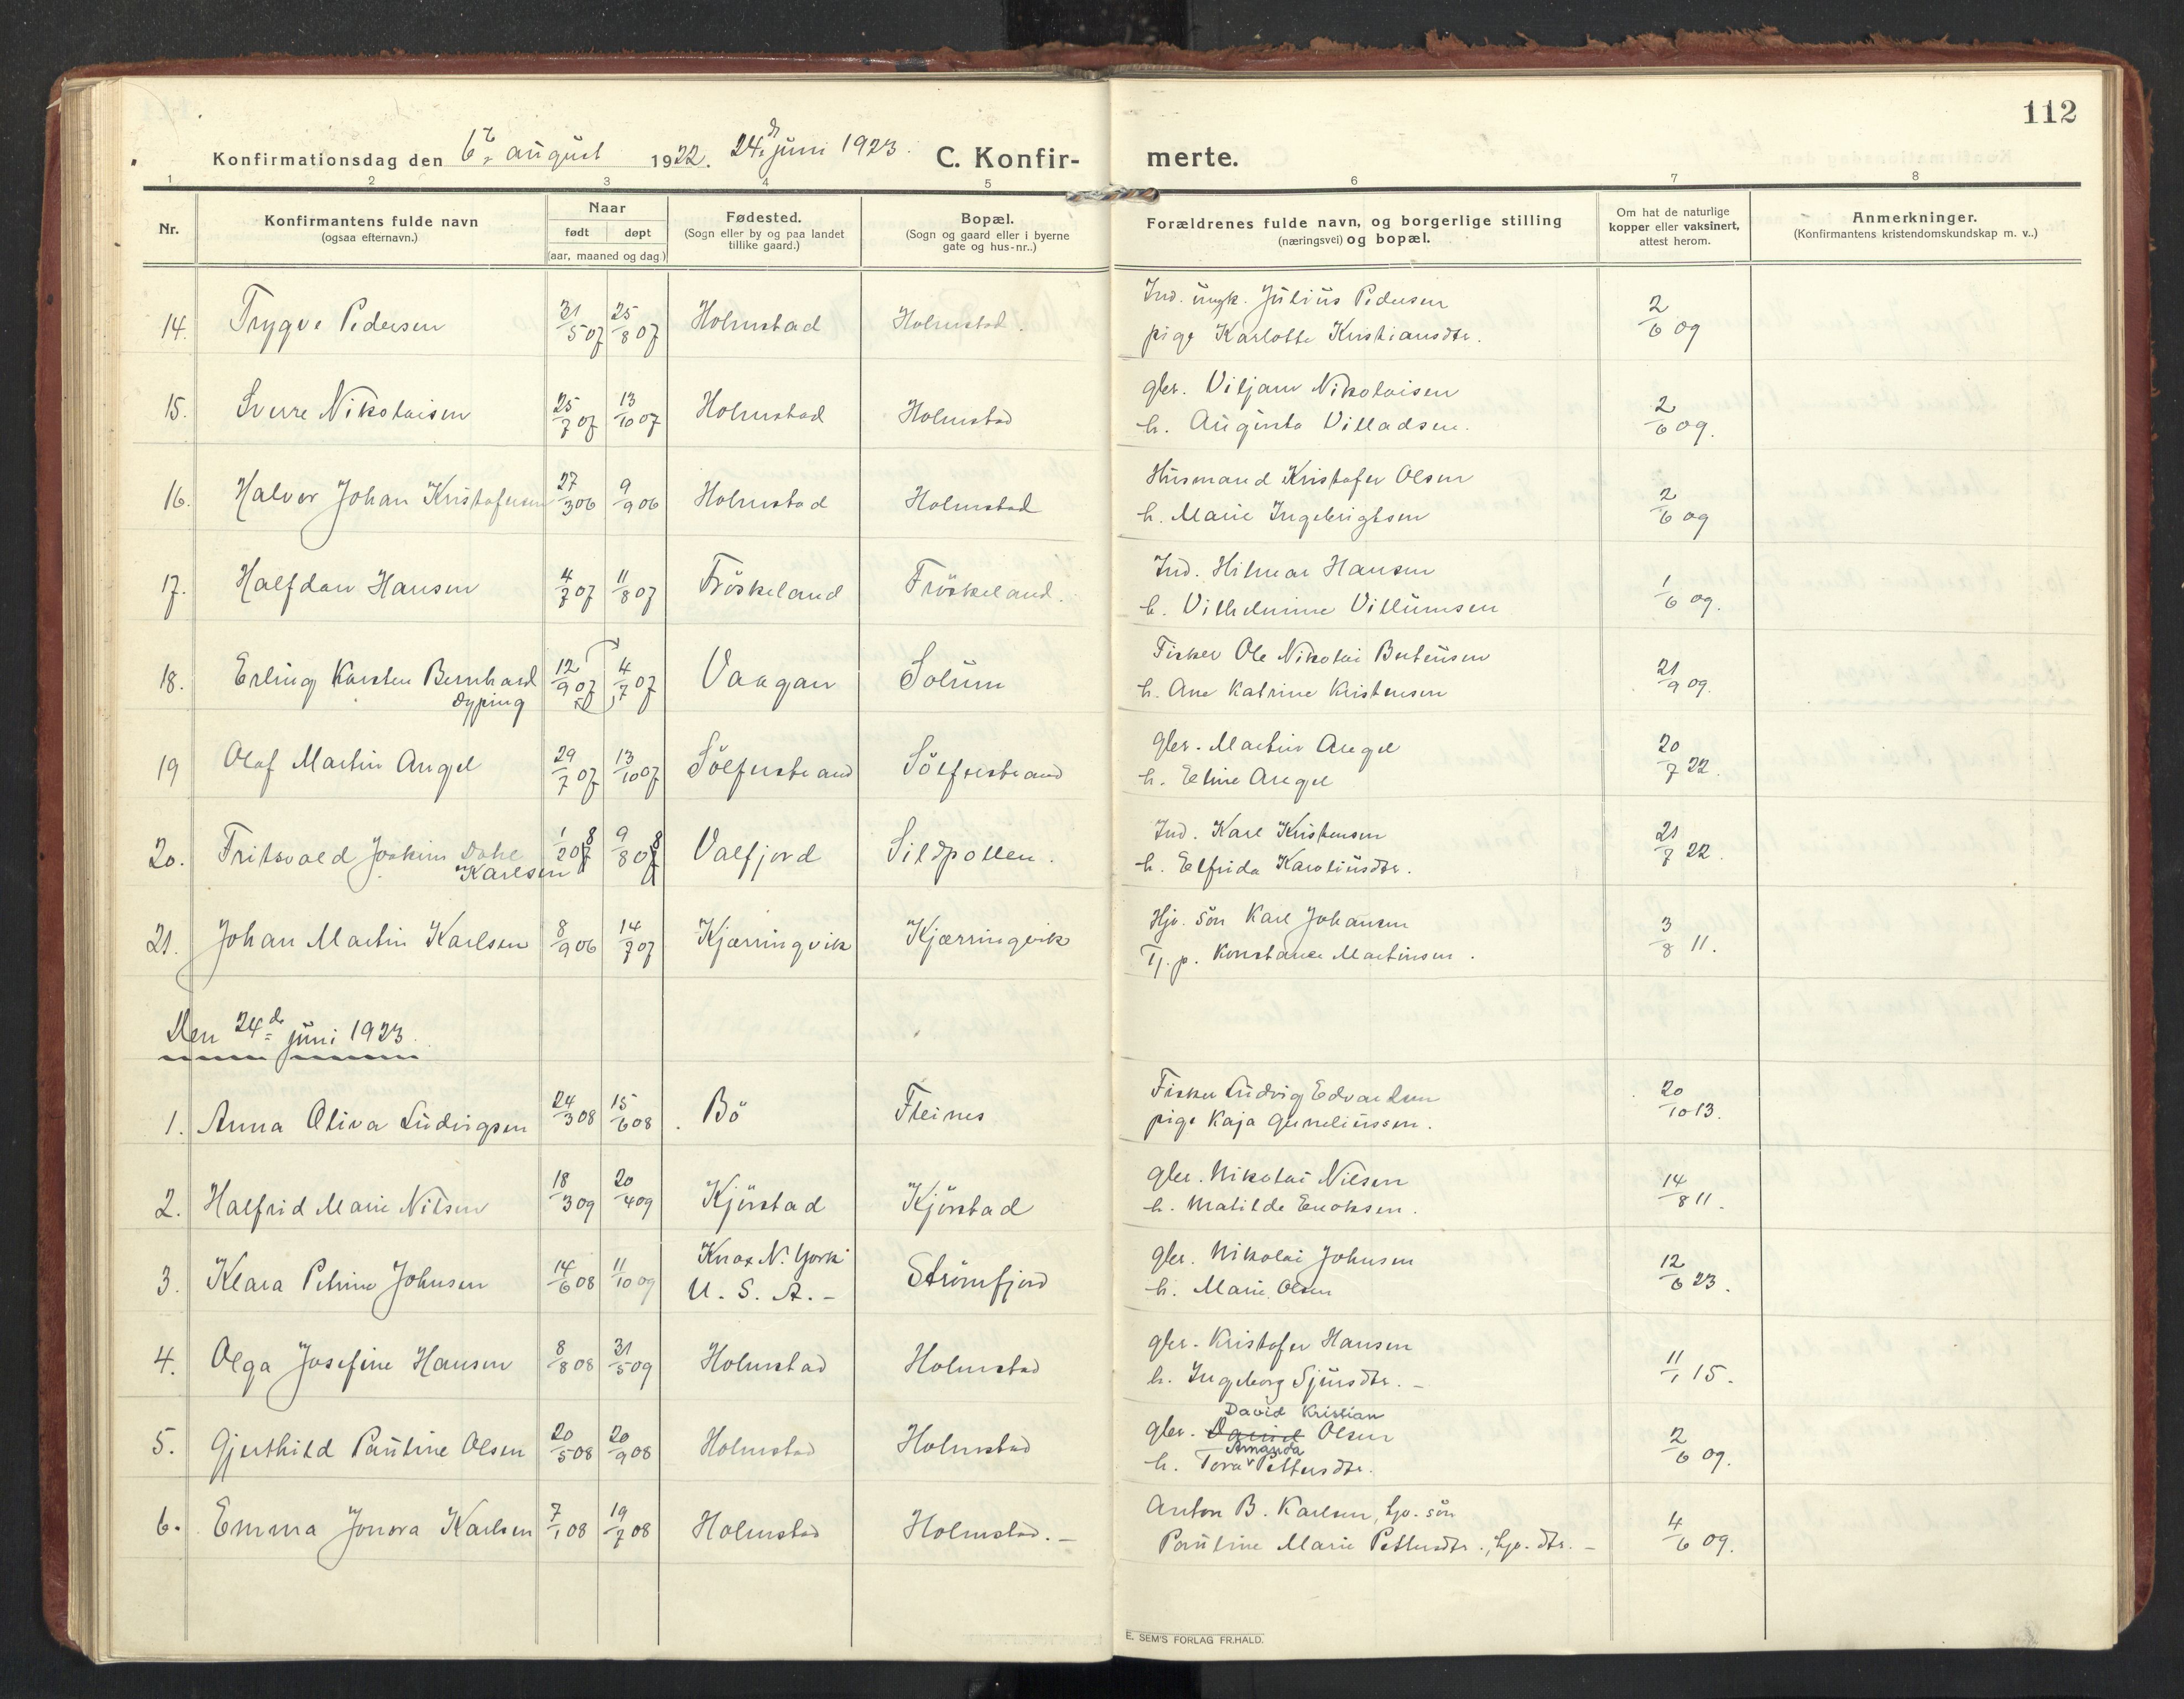 112
Konfirmationsdag den 6te august 1922. 24de juni 1923. C. Konfir- merte.
1 2 3 4 5 6 7 8
Nr.
Konfirmantens fulde navn
(ogsaa efternavn.)
Naar
født døpt
(aar, maaned og dag.)
Fødested.
(Sogn eller by og paa landet
tillike gaard.)
Bopæl.
(Sogn og gaard eller i byerne
gate og hus-nr..)
Forældrenes fulde navn, og borgerlige stilling
(næringsvei) og bopæl.
Om hat de naturlige
kopper eller vaksinert,
attest herom.
Anmerkninger.
(Konfirmantens kristendomskundskap m. v..)
14. Trygve Pedersen 31/5 07 25/8 07 Holmstad Holmstad. Ind. ungk. Julius Pedersen 2/6 09
pige Karlotte Kristiansdtr.
15. Sverre Nikolaisen 25/7 07 13/10 07 Holmstad Holmstad gbr. Viljam Nikolaisen 2/6 09.
h. Augusta Villadsen.
16. Halvor Johan Kristofersen 27/3 06 9/9 06 Holmstad Holmstad Husmand Kristofer Olsen 2/6 09
h. Marie Ingebrigtsen
17. Halfdan Hansen 4/7 07 11/8 07 Fröskeland Fröskeland. Ind. Hilmar Hansen 1/6 09.
h. Vilhelmine Villumsen
18. Erling Karsten Bernhard 12/9 07 4/7 07 Vaagan Solum Fisker Ole Nikolai Berteusen 21/9 09.
Dyping h. Ane Katrine Kristensen
19 Olaf Martin Angel 29/7 07 13/10 07 Sölfestrand Sölfestrand gbr. Martin Angel 20/7 22.
h. Eline Angel
20. Fritsvald Joakim Dahl 1/2 08 9/8 08 Valfjord Sildpollen. Ind. Karl Kristensen 21/7 22.
Karlsen h. Elfrida Karoliusdtr.
21. Johan Martin Karlsen 8/9 06 14/7 07 Kjærringvik Kjærringvik Hjv. sön Karl Johansen 3/8 11.
Tj. p. Konstance Martinsen.
Den 24de juni 1923.
1. Anna Oliva Ludvigsen 24/3 08 15/6 08 Bö Fleines Fisker Ludvig Edvardsen 20/10 13.
pige Kaja Corneliussen.
2. Halfrid Marie Nilsen 18/3 09 20/4 09 Kjörstad Kjörstad gbr. Nikolai Nilsen 14/8 11.
h. Matilde Enoksen.
3. Klara Petrine Johnsen 14/6 08 11/10 09 Knox N. York Strömfjord gbr. Nikolai Johnsen 12/6 23.
U. S. A. - h. Marie Olsen
4. Olga Josefine Hansen 8/8 08 31/5 09 Holmstad Holmstad gbr. Kristofer Hansen 11/1 15.
h. Ingeborg Sjursdtr. -
David Kristian
5. Gjerthild Pauline Olsen 20/5 08 20/9 08 Holmstad Holmstad gbr. Daniel Olsen 2/6 09.
Amanda
h. Tora Pettersdtr.
6. Emma Jonora Karlsen 7/1 08 19/7 08 Holmstad Holmstad. - Anton B. Karlsen, hjv. sön 4/6 09.
Pauline Marie Pettersdtr., hjv. dtr. -
E. SEM'S FORLAG FR.HALD.